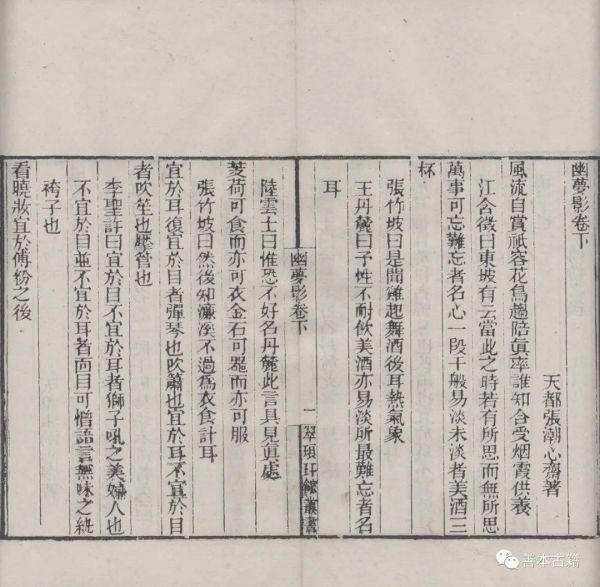 幽夢影卷下
天都張潮心齋著
風流自賞祇容花鳥趨陪眞率誰知合受烟霞供養
江含徵曰東坡有云當此之時若有所思而無所思
萬事可忘難忘者名心一段千般易淡未淡者美酒三
杯
張竹坡曰是聞雞起舞酒後耳熱氣象
王丹麓曰予性不耐飲美酒亦易淡所最難忘者名
耳
幽夢影卷下
一
翠琅玕館叢書
陸雲士曰惟恐不好名丹麓此言具見眞處
芰荷可食而亦可衣金石可器而亦可服
張竹坡曰然後知濂溪不過爲衣食計耳
宜於耳復宜於目者彈琴也吹蕭也宜於耳不宜於目
者吹笙也擫管也
李聖許曰宜於目不宜於耳者獅子吼之美婦人也
不宜於目並不宜於耳者面目可憎語言無味之紈
袴子也
看曉妝宜於傅粉之後
善本古籍